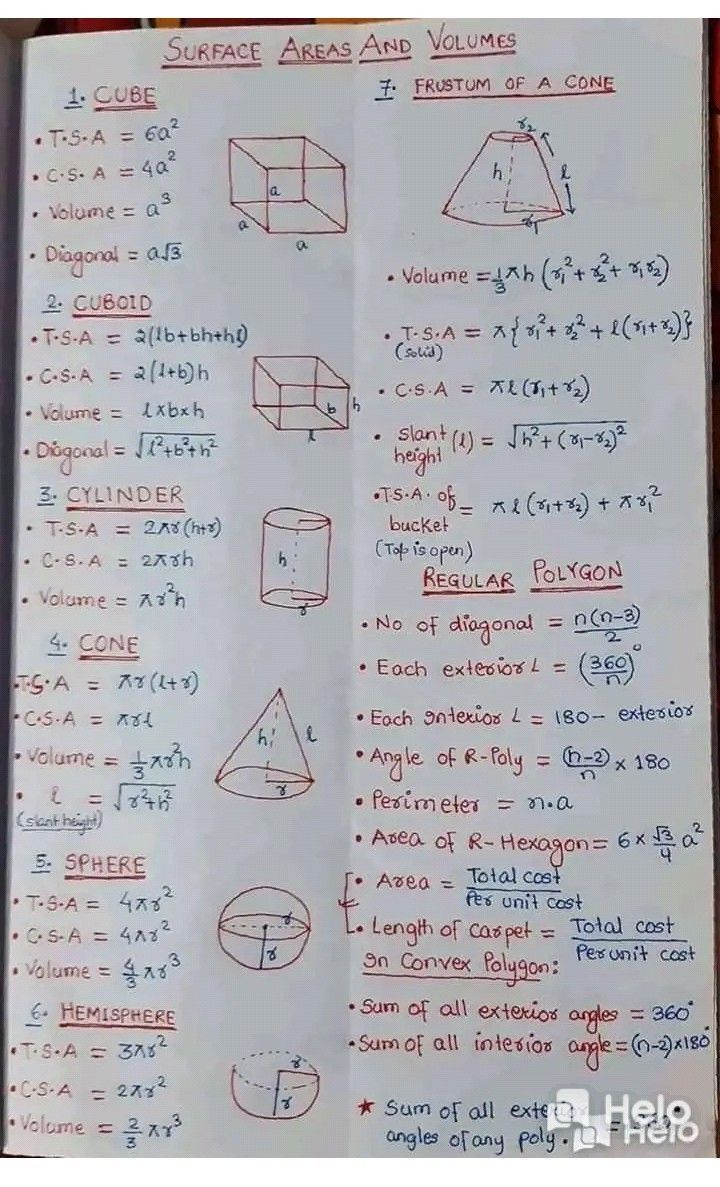 SURFACE AREAS AND VOLUMES
1. CUBE
• T.S.A = 6a²
• C.S.A = 4a²
• Volume = a³
• Diagonal = a√3
a
a
a
2. CUBOID
• T.S.A = 2(lb+bh+hl)
• C.S.A = 2(l+b)h
• Volume = l×b×h
• Diagonal = √(l²+b²+h²)
b
h
l
3. CYLINDER
• T.S.A = 2πr(h+r)
• C.S.A = 2πrh
• Volume = πr²h
h
r
4. CONE
•T.S.A = πr(l+r)
•C.S.A = πrl
•Volume = 1/3 πr²h
• l = √(r²+h²)
(slant height)
h
l
r
5. SPHERE
•T.S.A = 4πr²
•C.S.A = 4πr²
•Volume = 4/3 πr³
r
r
6. HEMISPHERE
•T.S.A = 3πr²
•C.S.A = 2πr²
•Volume = 2/3 πr³
r
r
7. FRUSTUM OF A CONE
r₂
h
l
r₁
• Volume = 1/3 πh (r₁² + r₂² + r₁r₂)
• T.S.A = π{r₁² + r₂² + l(r₁+r₂)}
(solid)
• C.S.A = πl(r₁+r₂)
• slant height (l) = √(h²+(r₁-r₂)²)
•T.S.A. of bucket = πl(r₁+r₂) + πr₁²
(Top is open)
REGULAR POLYGON
• No of diagonal = n(n-3)/2
• Each exterior L = (360/n)°
• Each Interior L = 180 - exterior
• Angle of R-Poly = (n-2)/n × 180
• Perimeter = n.a
• Area of R-Hexagon = 6 × √3/4 a²
• Area = Total cost/Per unit cost
• Length of carpet = Total cost/Per unit cost
In Convex Polygon:
•Sum of all exterior angles = 360°
•Sum of all interior angle = (n-2)×180°
★ Sum of all
angles of any poly. =
Helo
Helo